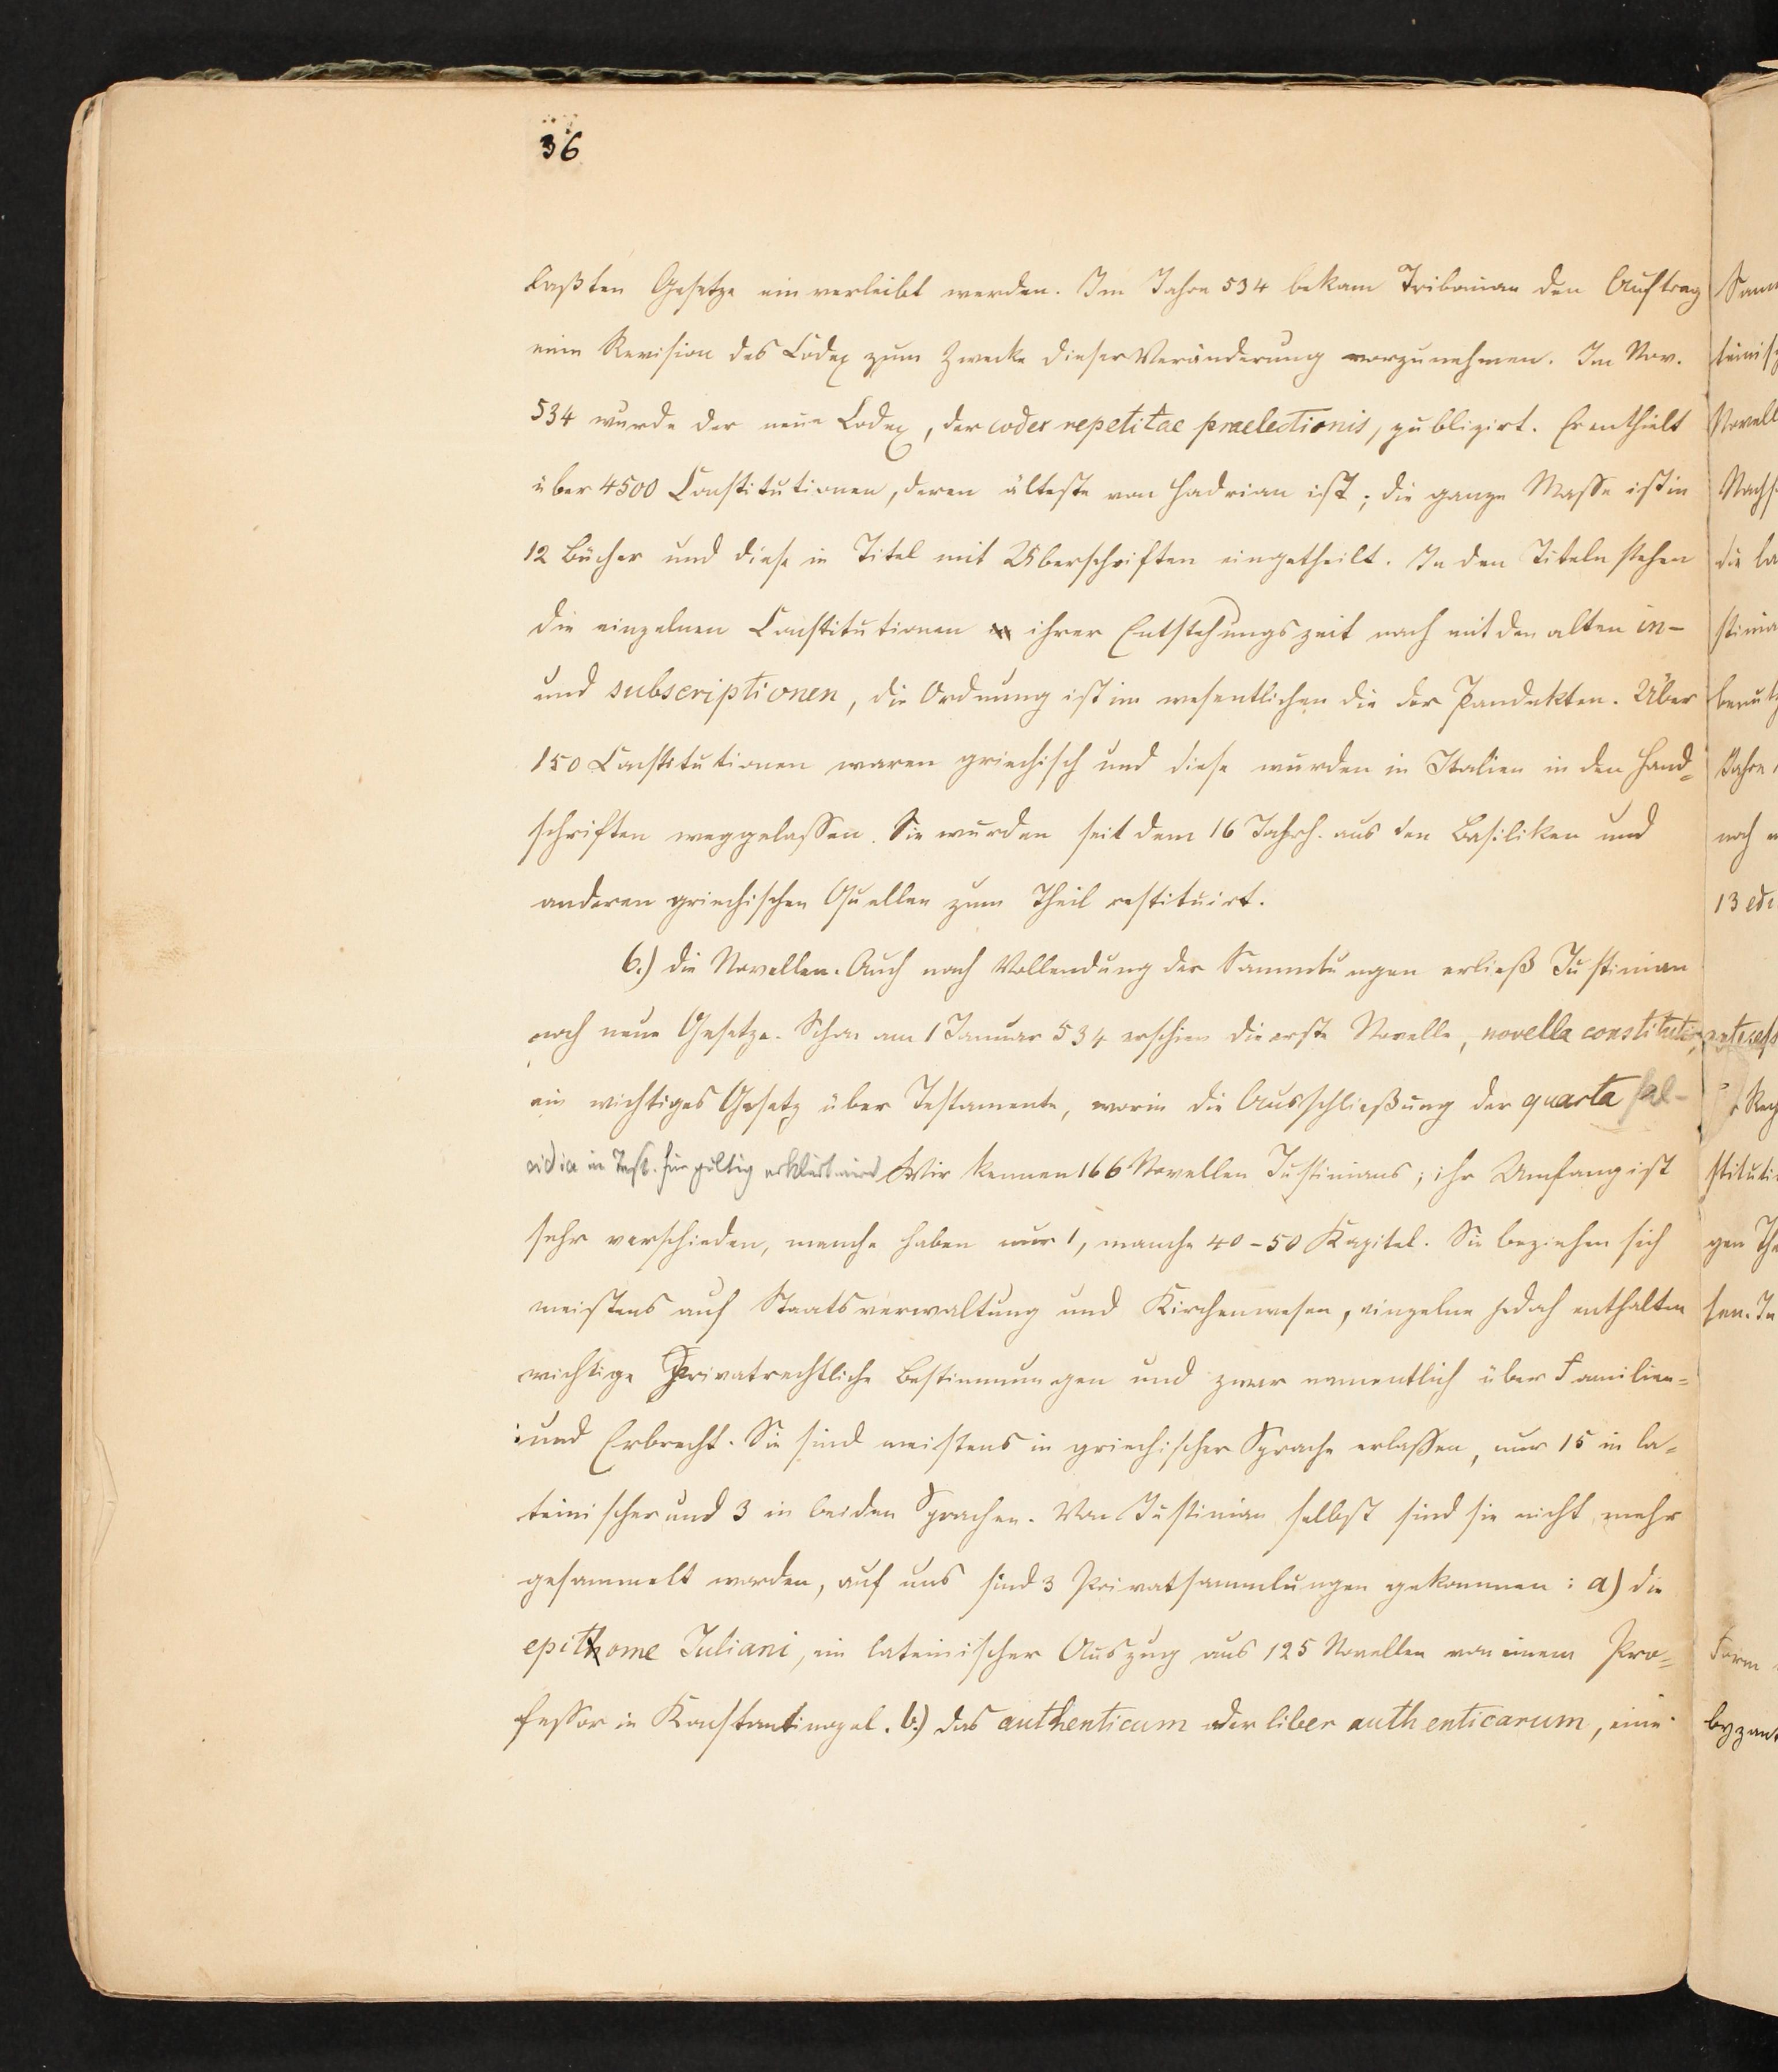 36
laßten Gesetze ein verleibt werden. Im Jahre 534 bekam Tribonian den Auftrag
eine Revision des Codex zum Zwecke dieser Veränderung vorzunehmen. Im Nov.
534 wurde der neue Codex, der codex repetitae praelectionis, publizirt. Er enthielt
über 4500 Constitutionen, deren älteste von Hadrian ist; die ganze Masse ist in
12 Bücher und diese in Titel mit Überschriften eingetheilt. In den Titeln stehen
die einzelnen Constitutionen ihrer Entstehungszeit nach mit den alten in-
und subscriptionen, die Ordnung ist im wesentlichen die der Pandekten. Über
150 Constitutionen waren griechisch und diese wurden in Italien in den Hand=
schriften weggelassen. Sie wurden seit dem 16 Jahrh. aus den Basiliken und
anderen griechischen Quellen zum Theil restituirt.
6.) die Novellen. Auch nach Vollendung der Sammlungen erließ Justinian
noch neue Gesetze. Schon am 1 Januar 534 erschien die erste Novelle, novella constitutio,
ein wichtiges Gesetz über Testamente, worin die Ausschließung der quarta fal-
cidia in Test. für giltig erklärt wird. Wir kennen 166 Novellen Justinians; ihr Umfang ist
sehr verschieden, manche haben nur 1, manche 40-50 Kapitel. Sie beziehen sich
meistens auf Staatsverwaltung und Kirchenwesen, einzelne jedoch enthalten
wichtige privatrechtliche Bestimmungen und zwar namentlich über Familien=
und Erbrecht. Sie sind meistens in griechischer Sprache erlassen, nur 15 in la=
teinischer und 3 in beiden Sprachen. Von Justinian selbst sind sie nicht mehr
gesammelt worden, auf uns sind 3 Privatsammlungen gekommen: a) die
epitome Juliani, ein lateinischer Auszug aus 125 Novellen von einem Pro=
fessor in Konstantinopel. b.) das authenticum oder liber authenticarum, eine